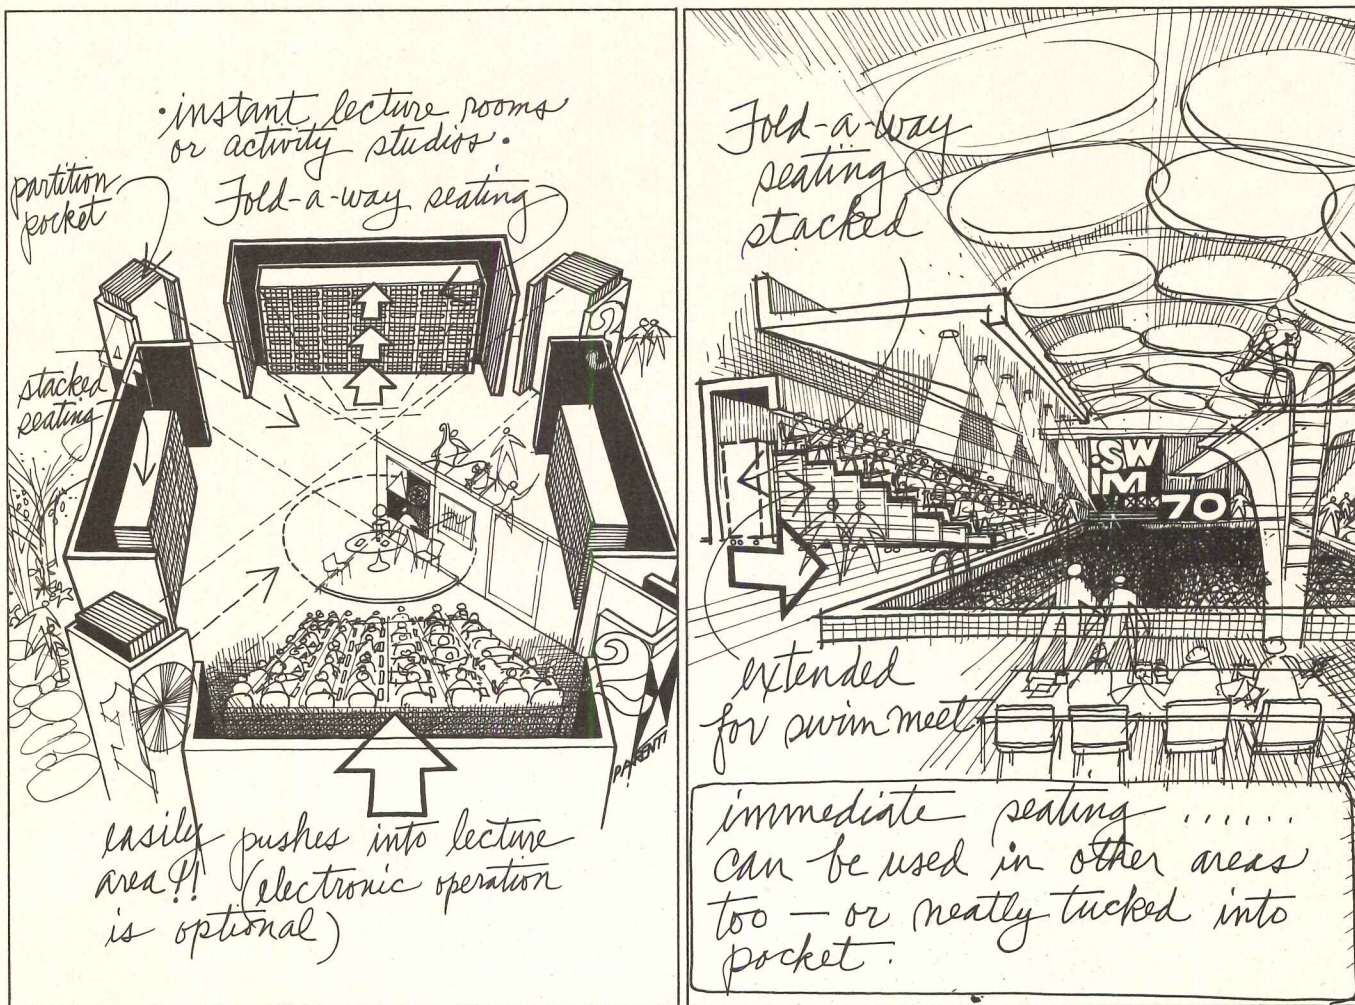 •instant lecture rooms
or activity studios•
partition
pocket
Fold-a-way seating
stacked
seating
PARENTI
easily pushes into lecture
area!! (electronic operation
is optional)
Fold-a-way
seating
stacked
SW
IM
70
extended
for swim meet
immediate seating ......
can be used in other areas
too — or neatly tucked into
pocket.